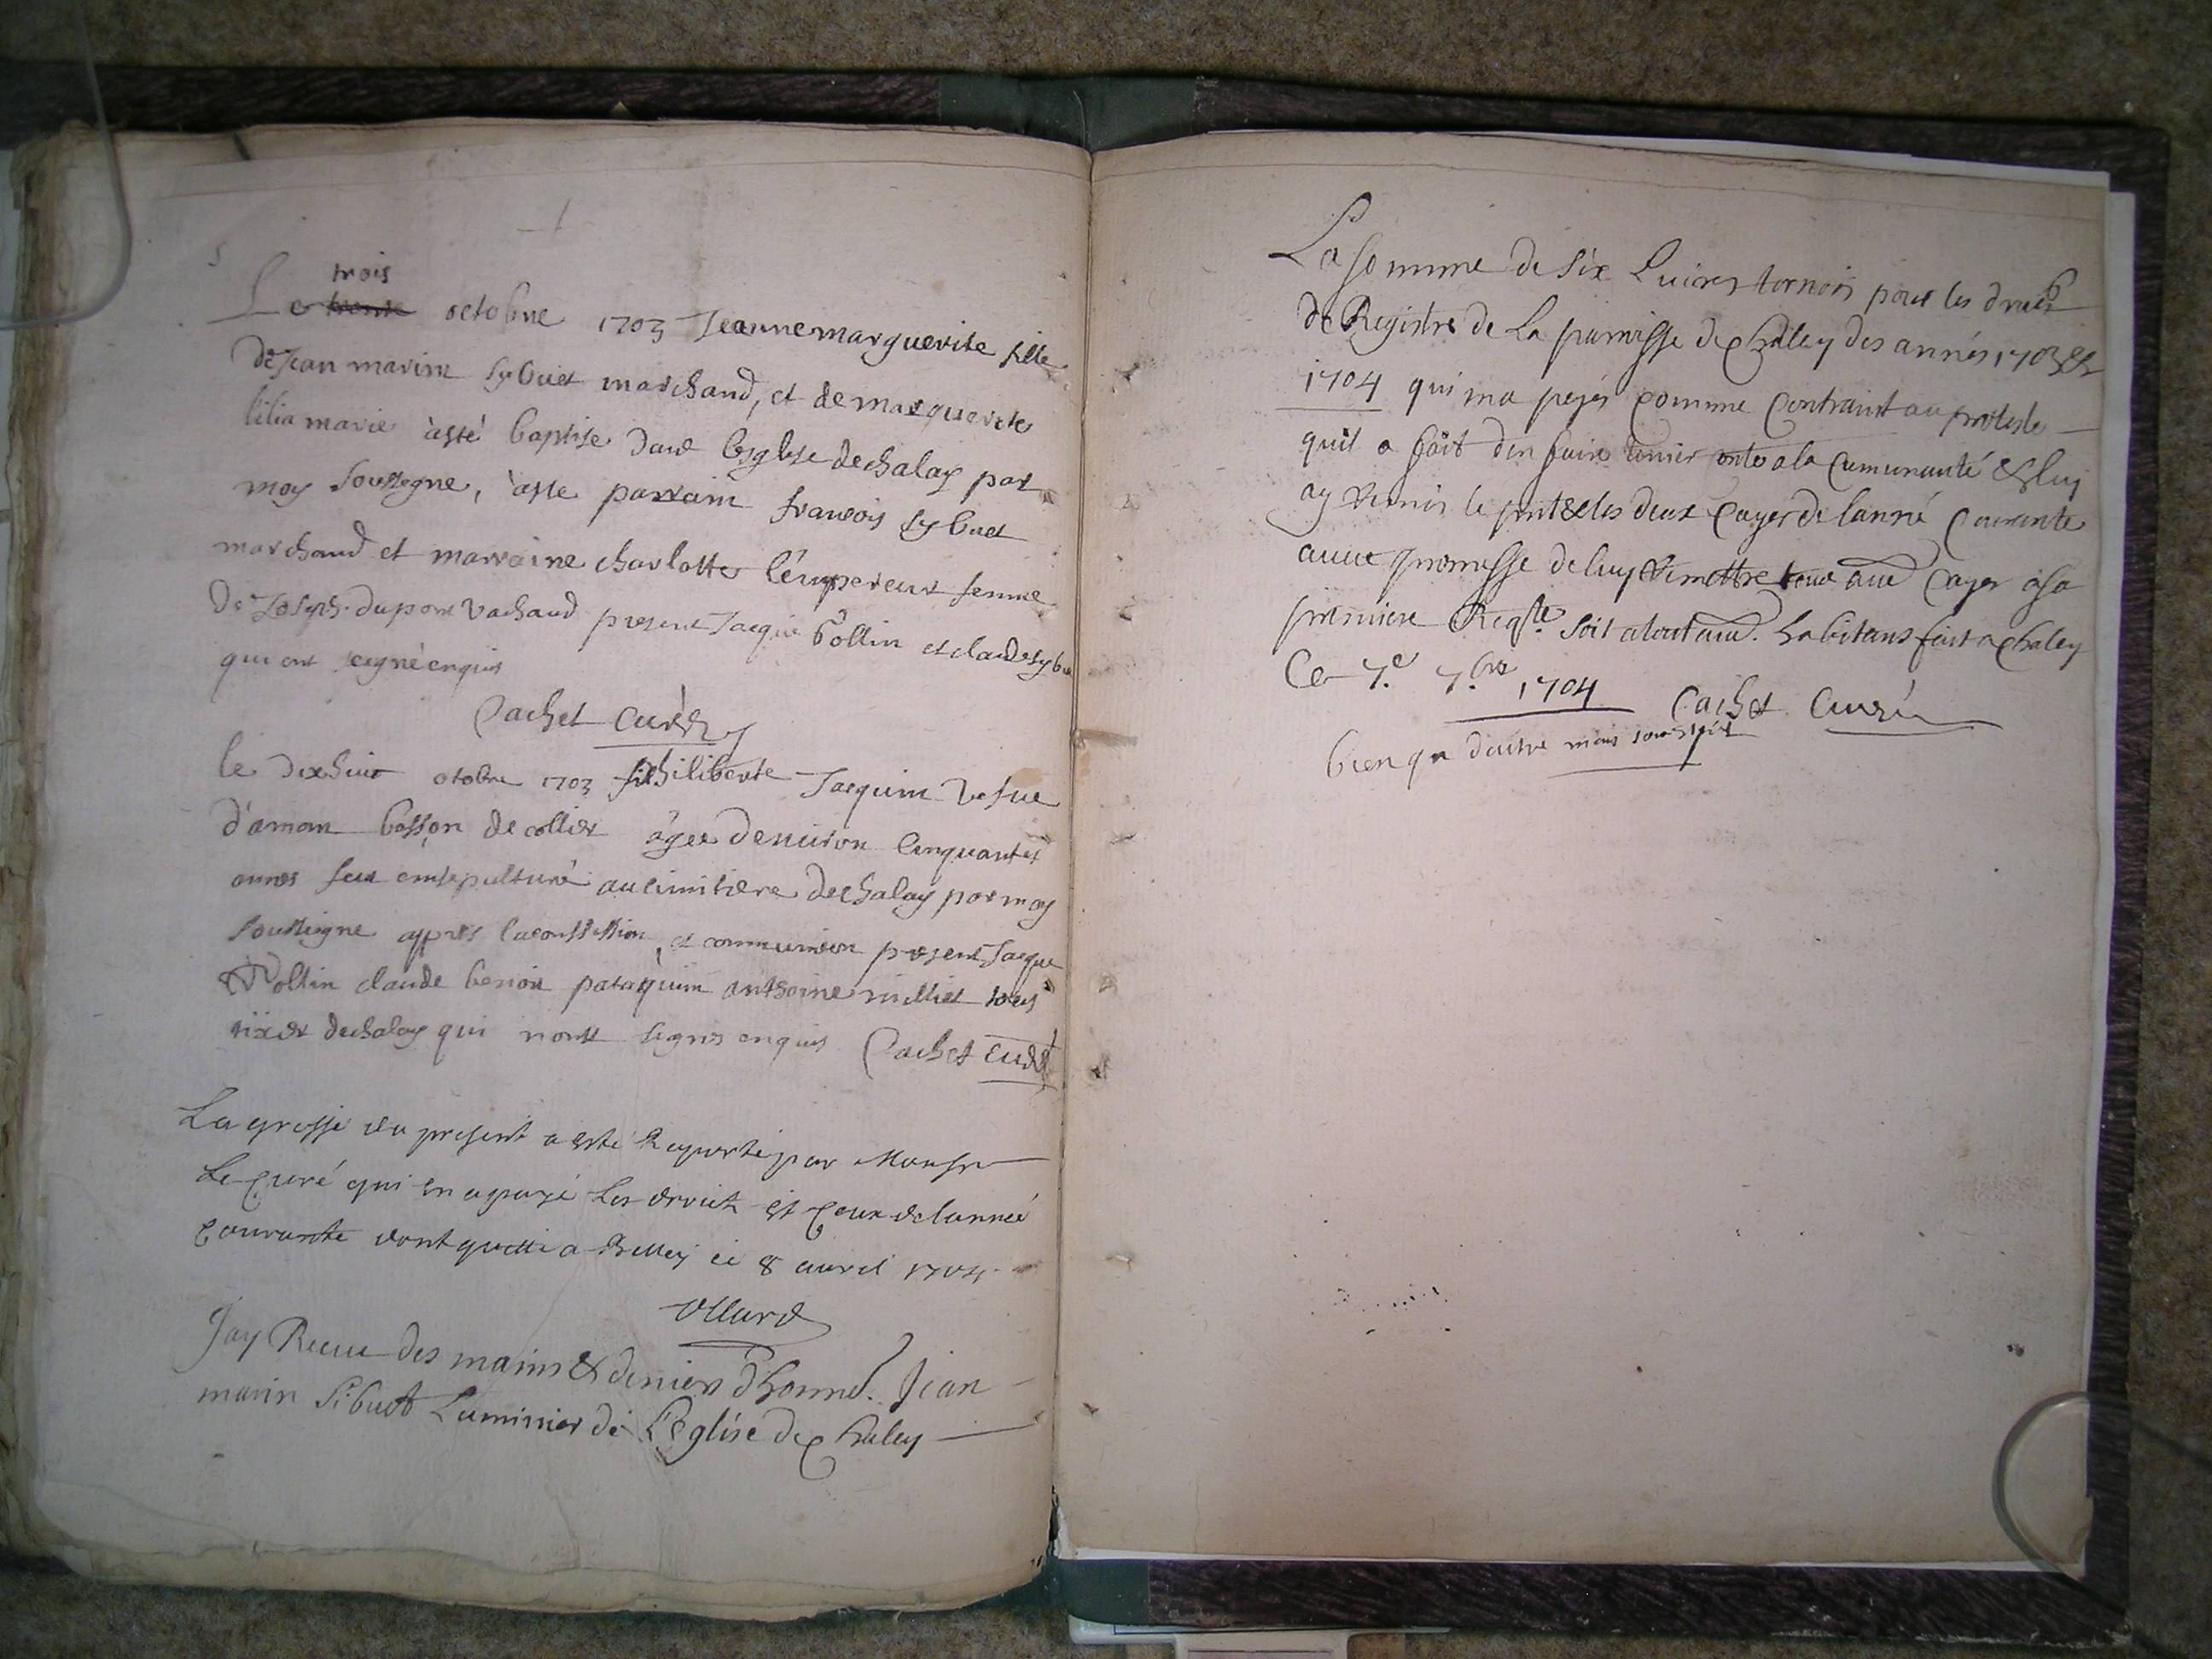 trois
Le trente octobre 1703 Jeanne marguerite fille
de Jean marin sybuet marchand, et de marguerite
lilia marie àsté baptise dans lesglise de chaley par
moy soussigne, àste parrain francois sybuet
marchand et marraine charlotte l'émpereur femme
de Joseph dupont vachaud present Jacque bollin et claude sybu
qui ont signé enquis
Cachet curé
le dix huit otobre 1703 philiberte Jacquin vefue
d'aman bosson de collier âgee denuiron cinquantes
annes feut ensepulturé au cimitiere de chaley par moy
soussigne appres laconfession, et communion present Jacque
Rollin claude benoit pataquin anthoine milliet tous
de chaley qui nont signes enquis Cachet curé
La grosse du present a esté Raporté par Monsr
Le Curé qui en a payé Les droict et Ceux de lannée
Courante dont quitte a Belley ce 8 auril 1704
Ollard
Jay Receu des mains & deniers d'honne. Jean
marin Sibuet Luminier de L'Eglise de Chaley
La somme de six Liures tornois pour les droict
de Registre de La parroisse de Chaley des annés 1703 &
1704 qui ma payés comme contraint au proteste
quil a fait den faire tenir conte a la cumunauté & luy
ay remis le pnt & les deux Cayer de lanné Courante
auuec promesse de luy Remettre tout aue Cayer a sa
premiere Reqte soit a tout aue. habitans fait a Chaley
Ce 7.e 7.bre 1704 Cachet Curé
bien q. d'autre main souscript